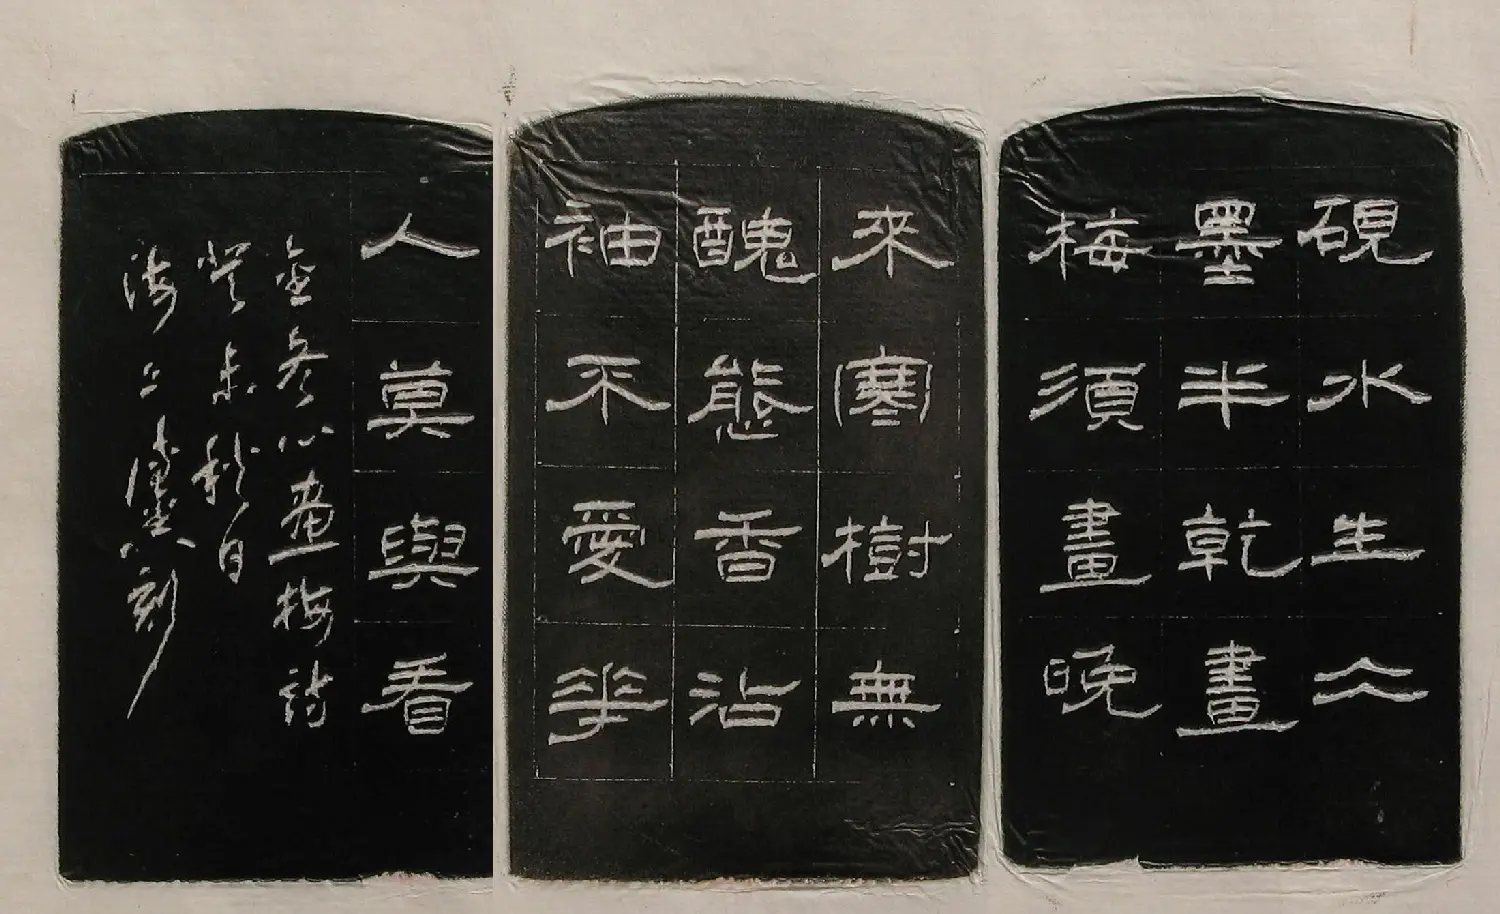 硯水生仌
墨半乾畫
梅須畫晚
來寒樹無
醜態香沾
袖不愛華
人莫與看
金冬心畫梅詩
癸未秋日
海上刻